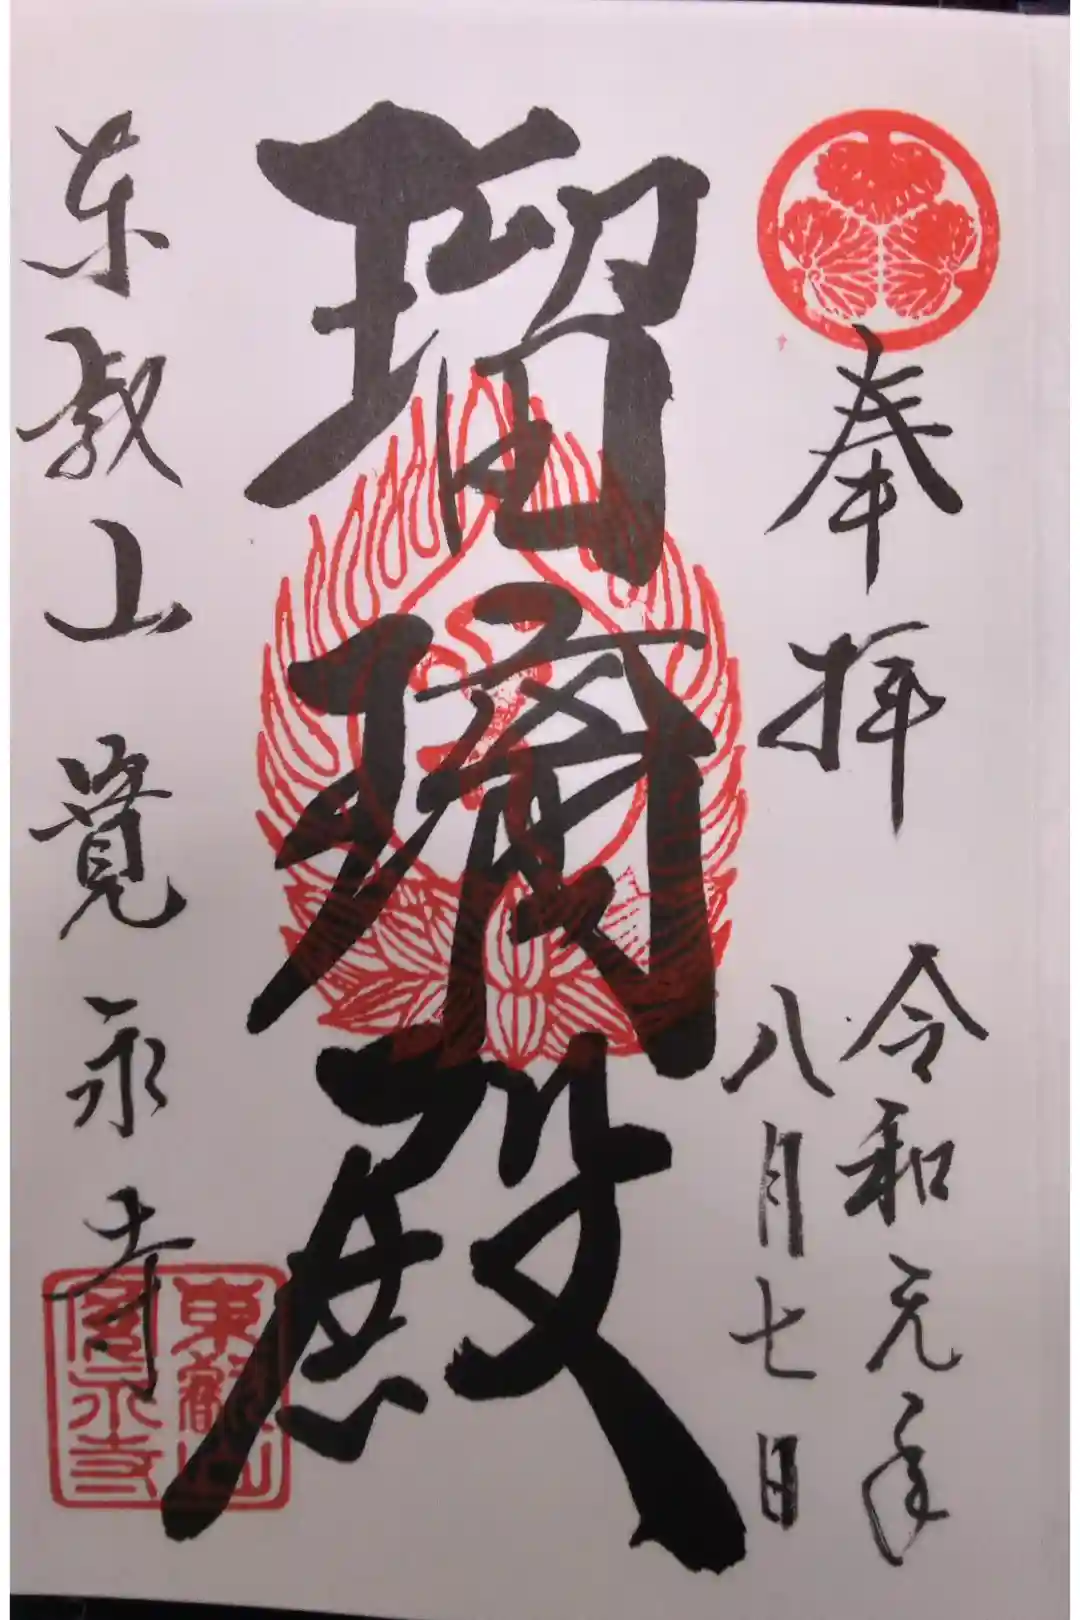 奉拝
令和元年
八月七日
瑠璃殿
東叡山寛永寺
東叡山
寛永寺